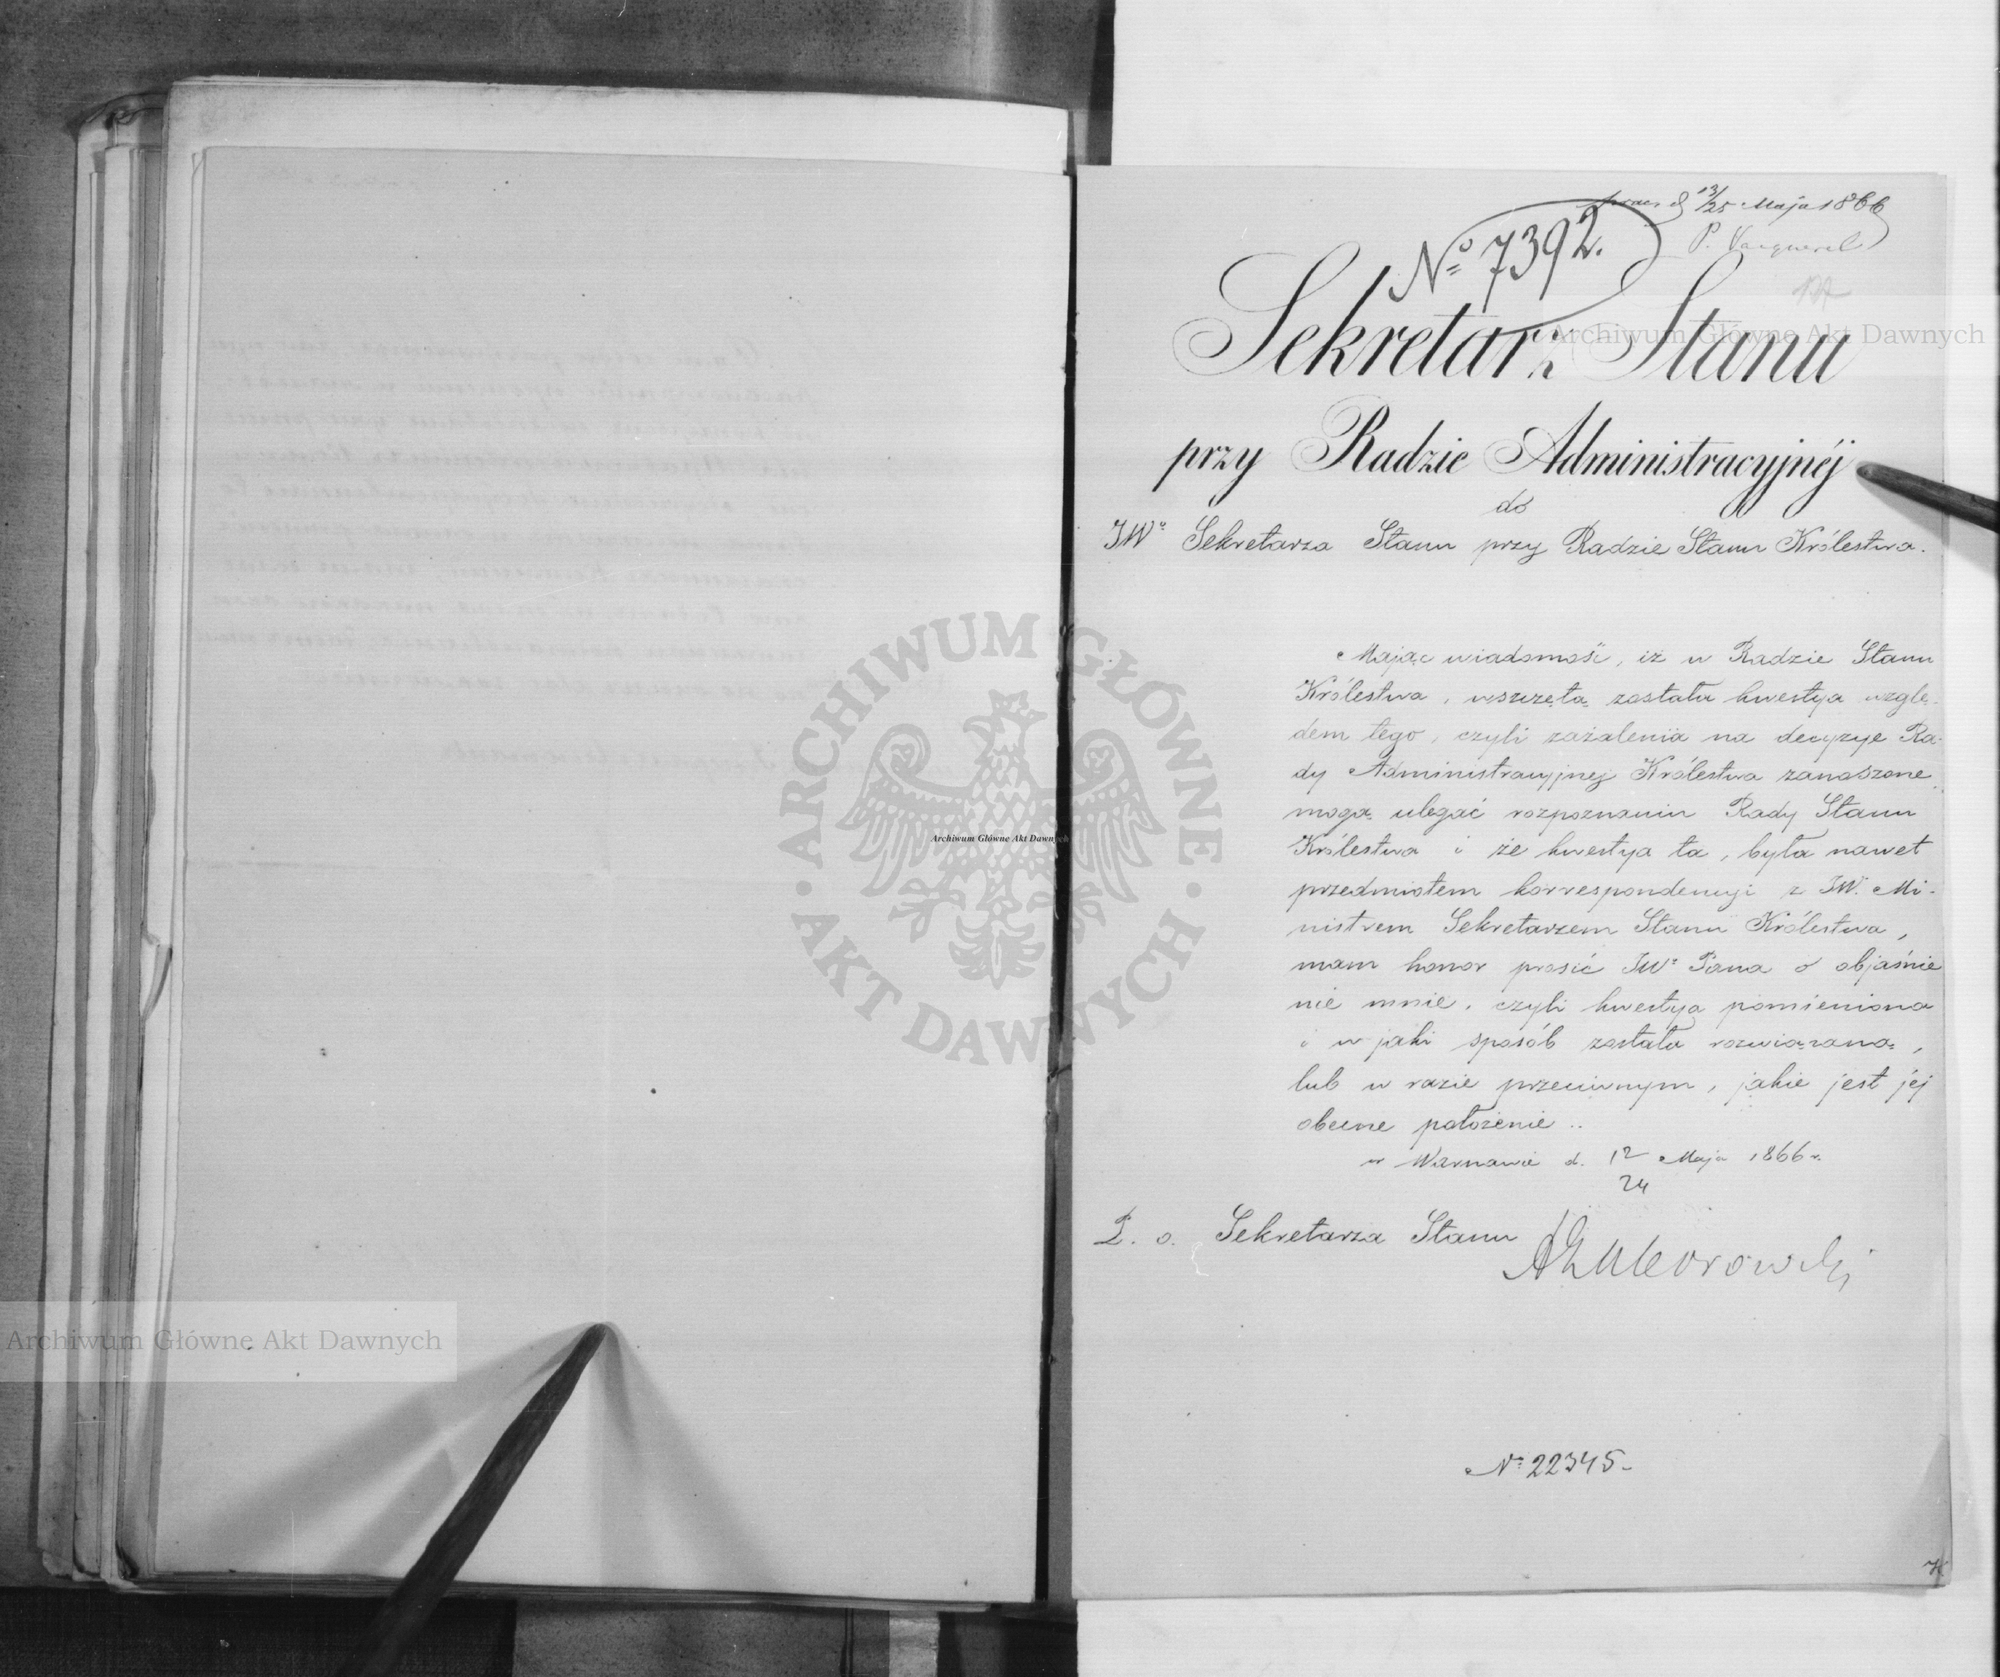 13/25 Maja 1866
No 7392.
Sekretarz Stanu
przy Radzie Administracyjnéj
do
JWo Sekretarza Stanu przy Radzie Stanu Królestwa.
Mając wiadomość, iż w Radzie Stanu
Królestwa, wszczętą została kwestya wzglę-
dem tego, czyli zażalenia na decyzye Ra-
dy Administracyjnej Królestwa zanoszone,
mogą ulegać rozpoznaniu Rady Stanu
Królestwa i że kwestya ta, była nawet
przedmiotem korrespondencyi z JW. Mi-
nistrem Sekretarzem Stanu Królestwa,
mam honor prosić JWo Pana o objaśnie
nie mnie, czyli kwestya pomieniona
i w jaki sposób została rozwiązaną,
lub w razie przeciwnym, jakie jest jej
obecne położenie..
w Warszawie d. 12/24 Maja 1866 r.
P. o. Sekretarza Stanu
No 22345-
Archiwum Główne Akt Dawnych
Archiwum Główne Akt Dawnych
Archiwum Główne Akt Dawnych
ARCHIWUM GŁÓWNE · AKT DAWNYCH ·